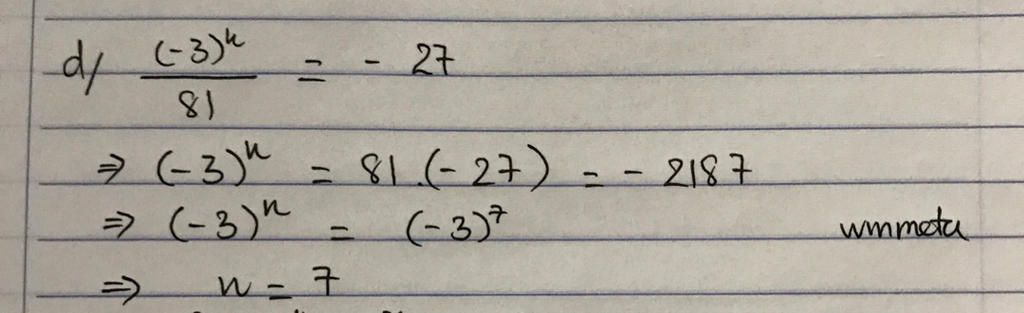 d/ (-3)^n / 81 = - 27
⇒ (-3)^n = 81.(-27) = - 2187
⇒ (-3)^n = (-3)^7
wmmeta
⇒ n = 7